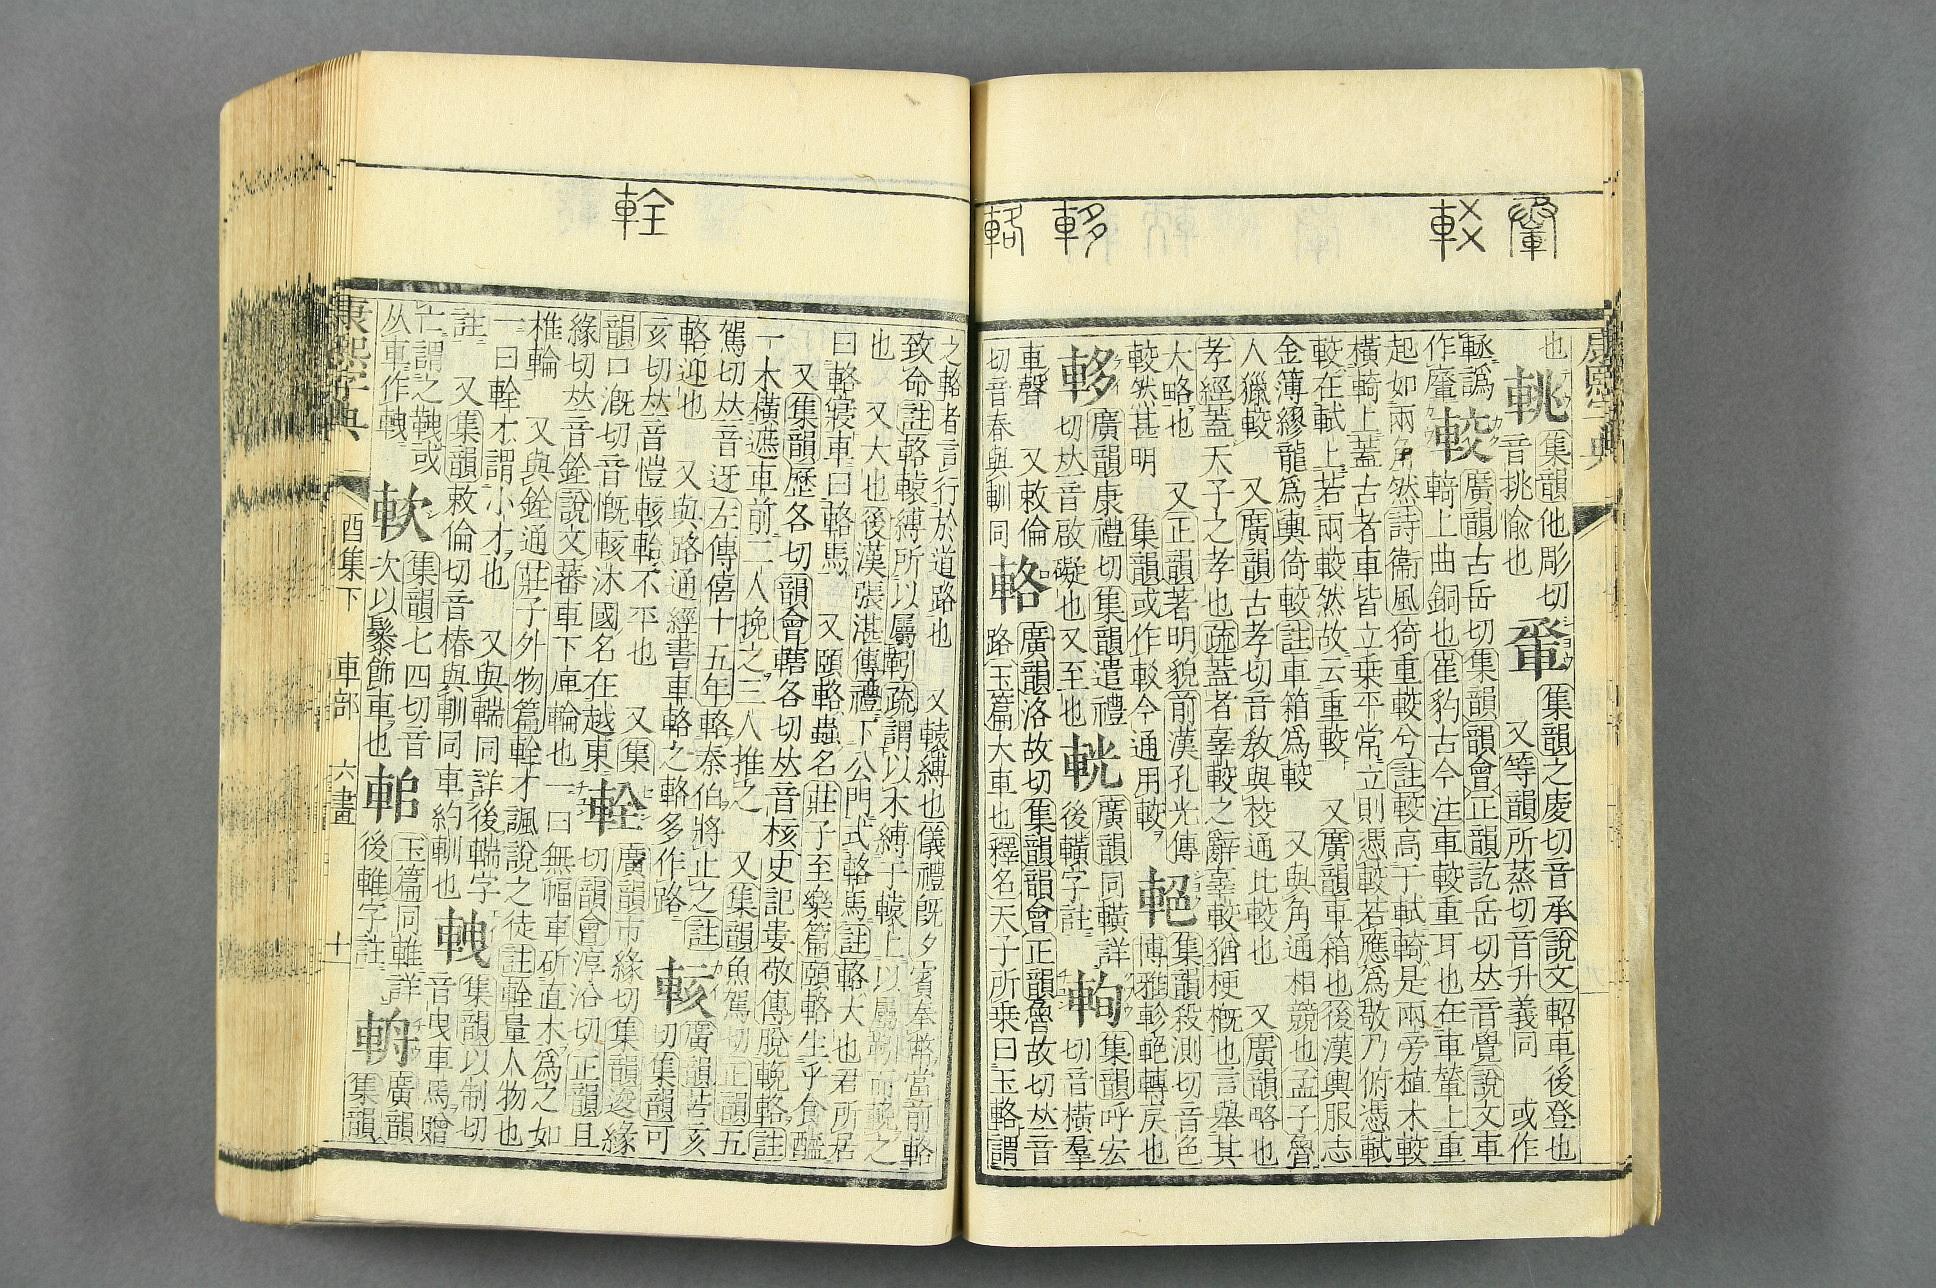 康熙字典
也 輄 集韻他彫切音挑愉也
𨋬 集韻之慶切音承說文軺車後登也
又等韻所蒸切音升義同 或作
作䡓 較 廣韻古岳切集韻韻會正韻訖岳切𠀤音覺說文車
輢上曲銅也崔豹古今注車較重耳也在車輂上重
起如兩角然詩衞風猗重較兮註較高于軾輢是兩旁植木較
橫輢上蓋古者車皆立乗平常立則憑較若應爲敬乃俯憑軾
較在軾上若兩較然故云重較 又廣韻車箱也後漢輿服志
金簿繆龍爲輿倚較註車箱爲較 又與角通相競也孟子魯
人獵較 又廣韻古孝切音敎與校通比較也 又廣韻略也
孝經蓋天子之孝也疏蓋者辜較之辭辜較猶梗槪也言舉其
大略也 又正韻著明貌前漢孔光傳
較然甚明 集韻或作䡈今通用較
集韻殺測切音色
博雅軫䡘轉戾也
軬 廣韻康禮切集韻遣禮
切𠀤音啟礙也又至也
廣韻同轒詳
後轒字註
軥 集韻呼宏
切音橫羣
車聲 又敕倫
切音春與軘同
輅 廣韻洛故切集韻韻會正韻魯故切𠀤音
路玉篇大車也釋名天子所乗曰玉輅謂
之輅者言行於道路也 又轅縛也儀禮旣夕賓奉幣當前輅
致命註輅轅縛所以屬靷疏謂以木縛于轅上以屬靷而輓之
也 又大也後漢張湛傳禮下公門式輅馬註輅大也君所居
曰輅寢車曰輅馬 又頤輅蟲名莊子至樂篇頤輅生乎食醯
又集韻歷各切韻會轄各切𠀤音核史記婁敬傳脫輓輅註
一木橫遮車前二人挽之三人推之 又集韻魚駕切正韻五
駕切𠀤音迓左傳僖十五年輅秦伯將止之註
輅迎也 又與路通經書車輅之輅多作路
輆 廣韻苦亥
切集韻可
亥切𠀤音愷輆軩不平也 又集
韻口漑切音慨輆沐國名在越東
輇 廣韻市緣切集韻逡緣
切韻會淳沿切正韻且
緣切𠀤音銓說文蕃車下庳輪也一曰無幅車斫直木爲之如
椎輪 又與銓通莊子外物篇輇才諷說之徒註輇量人物也
一曰輇才謂小才也 又與輲同詳後輲字
註 又集韻敕倫切音椿與軘同車約軘也
𨋩 集韻以制切
音曳車馬贈
亡謂之鞢或
从車作𨋩
𨋰 集韻七四切音
次以鬃飾車也
䡔 玉篇同雗詳
後雗字註
輈 廣韻
集韻
康熙字典 酉集下 車部 六畫 十